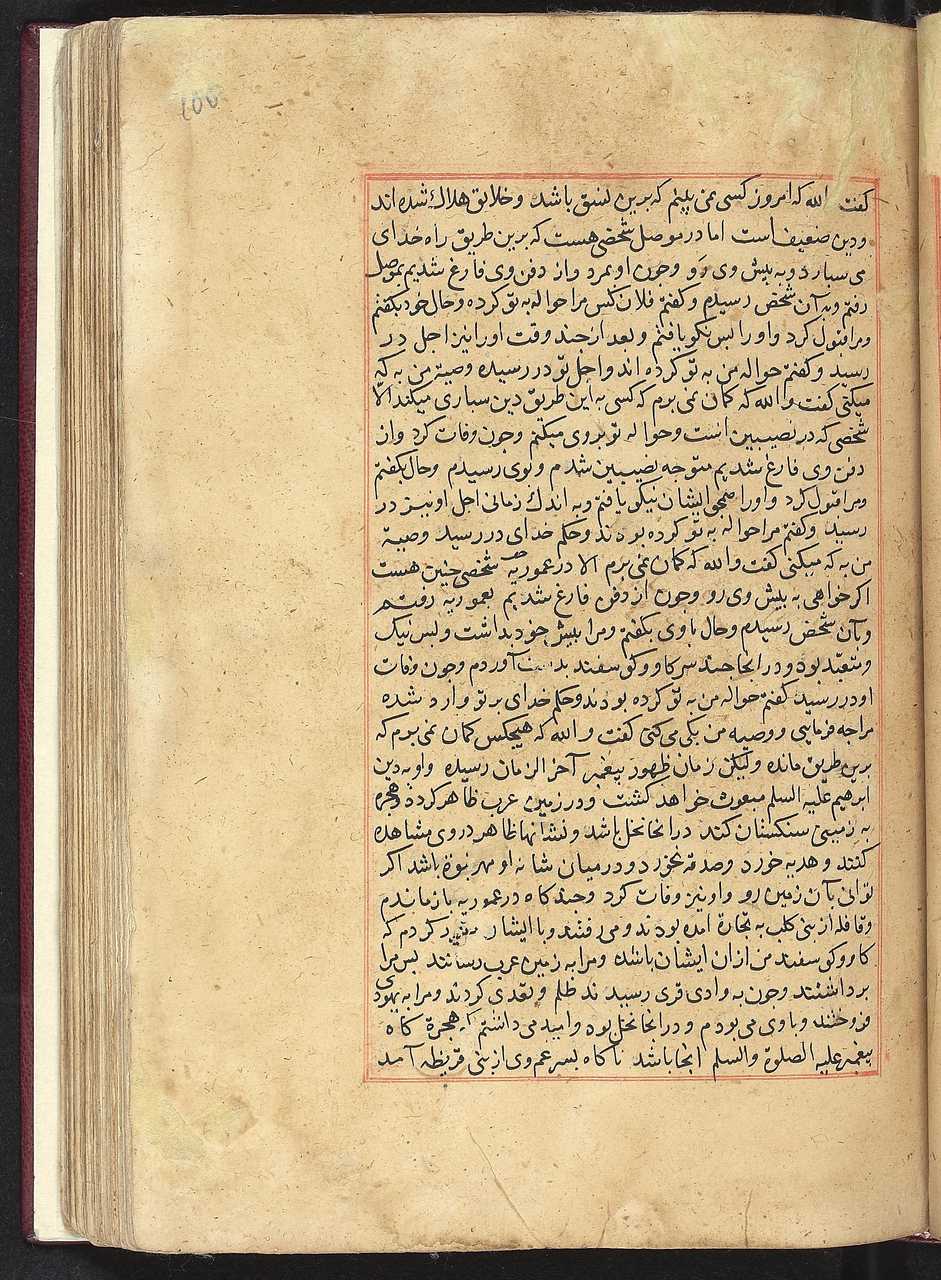 100
کفت والله که امروز کسی نمی بینم که برین نسق باشد و خلایق هلاک شده اند
و دین ضعیف است اما در موصل شخصی هست که برین طریق راه خدای
می سبارد و به بیش وی رو و جون او بمرد و از دفن وی فارغ شدیم بموصل
رفتم و به آن شخص رسیدم و کفتم فلان کس مرا حواله به تو کرده و حال خود بکفتم
و مرا قبول کرد و او را بس نکو یافتم و بعد از جند وقت او را نیز اجل در
رسید و کفتم حواله من به تو کرده اند و اجل تو در رسیده وصیة من به که
میکنی کفت والله که کمان نمی برم که کسی به این طریق دین سباری میکند الا
شخصی که در نصیبین است و حواله تو بر وی میکنم و جون وفات کرد و از
دفن وی فارغ شدیم متوجه نصیبین شدم و بوی رسیدم و حال بکفتم
و مرا قبول کرد و او را ایشان نیکو یافتم و به اندک زمانی اجل او نیز در
رسید و کفتم مرا حواله به تو کرده بودند و حکم خدای در رسید وصیة
من به که میکنی کفت والله که کمان نمی برم الا در عموریه شخصی جنین هست
اکر خواهی به بیش وی رو و جون از دفن فارغ شدیم بعموریه رفتم
و بآن شخص رسیدم و حال با وی بکفتم و مرا بیش خود بداشت و بس نیک
و متعبد بود و در انجا جند سر کاو و کوسفند بدست آوردم و جون وفات
او در رسید کفتم حواله من به تو کرده بودند و حکم خدای بر تو وارد شده
مرا جه فرمایی و وصیه من بکی می کنی کفت والله که هیجکس کمان نمی برم که
برین طریق مانده و لیکن زمان ظهور بیغمبر آخر الزمان رسیده و او به دین
ابرهیم علیه السلم مبعوث خواهد کشت و در زمین عرب ظاهر کردد و هجرة
به زمینی سنکستان کند در انجا نخل باشد و نشانها ظاهر در وی مشاهده
کنند و هدیه خورد و صدقه نخورد و در میان شانه او مهر نبوة باشد اکر
توانی بآن زمین رو و او نیز وفات کرد و جند کاه در عموریه بازماندم
و قافله از بنی کلب به تجارة امده بودند و می رفتند و با ایشان کردم که
کاو و کوسفند من از ان ایشان باشد و مرا به زمین عرب رسانند بس مرا
برداشتند و جون به وادی قری رسیدند ظلم و تعدی کردند و مرا به یهودی
فروختند و با وی می بودم و در انجا نخل بود و امید می داشتم که هجرة کاه
بیغمبر علیه الصلوة والسلم انجا باشد ناکاه بسر عم وی از بنی قریظه آمد